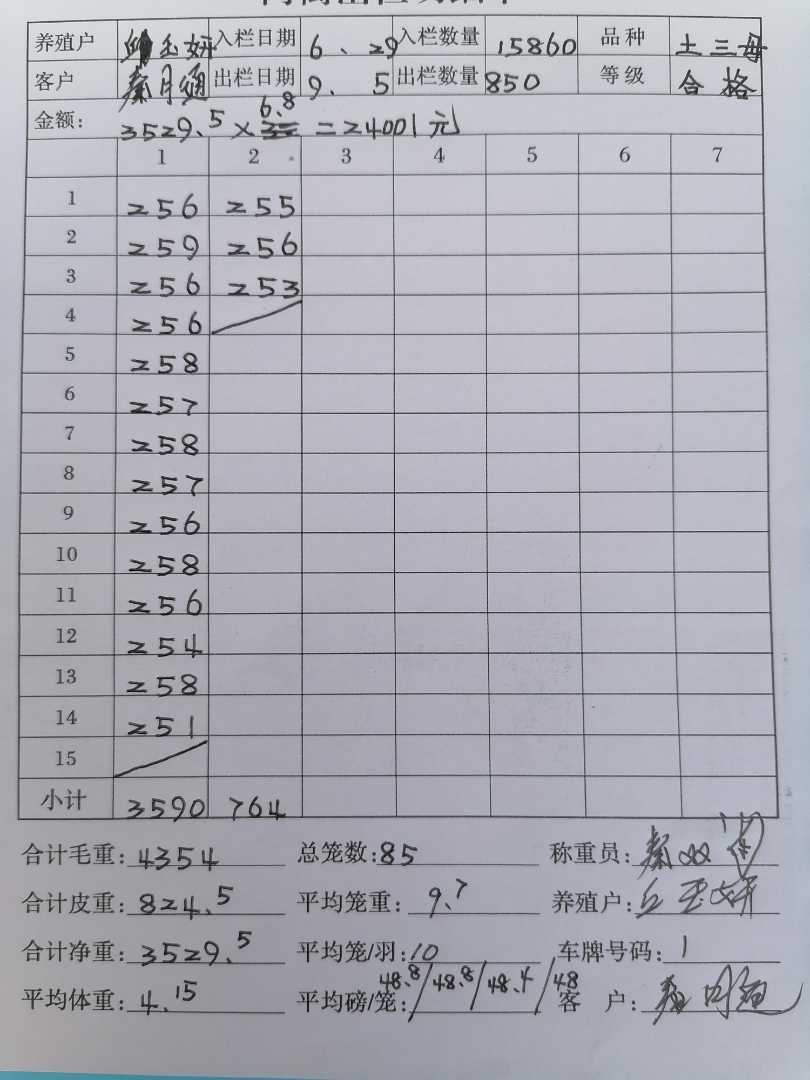 养殖户 玉妍 入栏日期 6、29 入栏数量 15860 品种 土三母
客户 秦月通 出栏日期 9、5 出栏数量 850 等级 合格
金额: 3529.5 × 6.8 = 24001元
1 2 3 4 5 6 7
1 256 255
2 259 256
3 256 253
4 256
5 258
6 257
7 258
8 257
9 256
10 258
11 256
12 254
13 258
14 251
15
小计 3590 764
合计毛重: 4354 总笼数: 85 称重员: 秦双
合计皮重: 824.5 平均笼重: 9.7 养殖户: 丘玉妍
合计净重: 3529.5 平均笼/羽: 10 车牌号码: 1
平均体重: 4.15 平均磅/笼: 48.8/48.8/48.4/48 客户: 秦月通